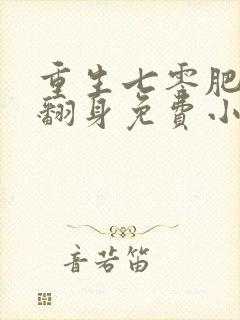 重生七零肥
翻身免费小
音若笛